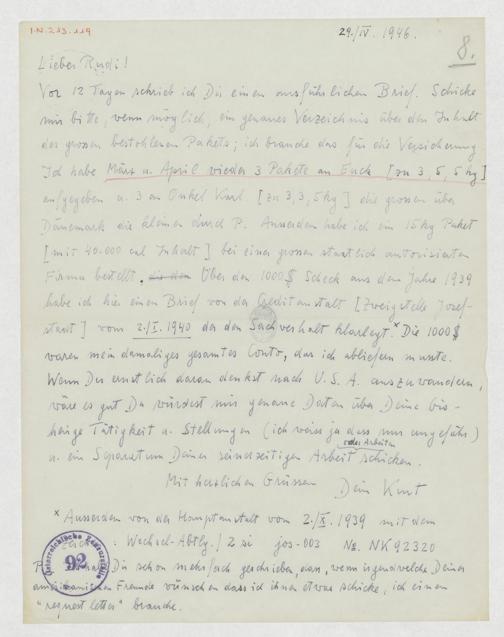 I.N. 233.119
29./IV. 1946.
8.
Lieber Rudi!
Vor 12 Tagen schrieb ich Dir einen ausführlichen Brief. Schicke
mir bitte, wenn möglich, ein genaues Verzeichnis über den Inhalt
des grossen bestohlenen Pakets; ich brauche das für die Versicherung
Ich habe März u. April wieder 3 Pakete an Euch [zu 3, 5, 5 kg]
aufgegeben u. 3 an Onkel Karl [zu 3, 3, 5 kg] die grossen über
Dänemark die kleinen durch P. Ausserdem habe ich ein 15 kg Paket
[mit 40.000 cal Inhalt] bei einer grossen staatlich autorisierten
Firma bestellt. Über den 1000 $ Scheck aus dem Jahre 1939
habe ich hier einen Brief von der Creditanstalt [Zweigstelle Josef-
stadt] vom 2./I. 1940 der den Sachverhalt klarlegt.* Die 1000 $
waren mein damaliges gesamtes Conto, das ich abliefern musste.
Wenn Du ernstlich daran denkst nach U.S.A. auszuwandern,
wäre es gut Du würdest mir genaue Daten über Deine bis-
herige Tätigkeit u. Stellungen (ich weiss ja dass nur ungefähr)
u. ein Separatum Deiner seinerzeitigen Arbeit oder Arbeiten schicken.
Mit herzlichen Grüssen
Dein Kurt
* Ausserdem von der Hauptanstalt vom 2./X. 1939 mit dem
: Wechsel-Abtlg./ 2 jos-003 No. NK 92320
Dir schon mehrfach geschrieben, dass, wenn irgendwelche Deiner
amerikanischen Freunde wünschen dass ich ihnen etwas schicke, ich einen
"request letter" brauche.
Österreichische Zensurstelle
92